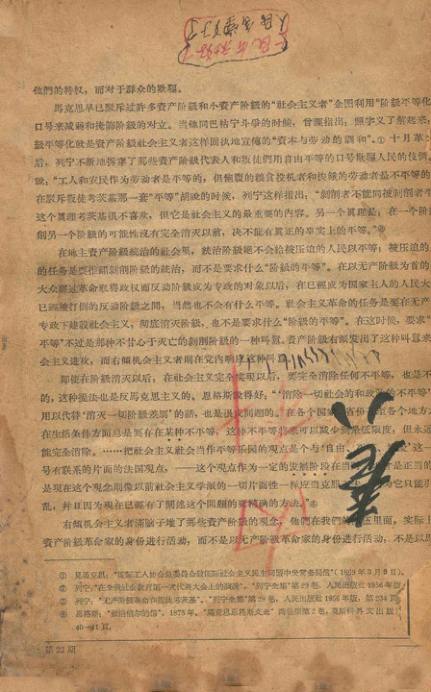 他們的特权，而对于群众的欺騙。
馬克思早已駁斥过許多資产阶級和小資产阶級的“社会主义者”企图利用“阶級平等化”
口号来减弱和掩飾阶級的对立。当他同巴枯宁斗爭的时候，曾經指出；照字义了解起来，
級平等化就是資产阶級社会主义者这样固执地宣傳的“資本与劳动的調和”。① 十月革
后，列宁不断地拆穿了那些資产阶級代表人和叛徒們用自由平等的口号欺騙人民的伎倆，
說：“工人和农民作为劳动者是平等的，但飽腹的粮食投机者和挨餓的劳动者是不平等的
在駁斥叛徒考茨基那一套“平等”胡說的时候，列宁这样指出；“剝削者不能同被剝削者平
这个真理考茨基很不喜欢，但它是社会主义的最重要的內容。另一个真理是；在一个阶
削另一个阶級的可能性沒有完全消灭以前，决不能有真正的事实上的平等。”③
在地主資产阶級統治的社会里，統治阶級絕不会給被压迫的人民以平等；被压迫的
的任务是要推翻剝削阶級的統治，而不是要求什么“阶級的平等”。在以无产阶級为首的
大众經过革命取得政权而反动阶級成为专政的对象以后，在已經成为国家主人的人民大
已經被打倒的反动阶級之間，当然也不会有什么平等。社会主义革命的任务是要在无产
专政下建設社会主义，彻底消灭阶級，也不是要求什么“阶級的平等”。在这时候，要求“
平等”不过是那种不甘心于灭亡的剝削阶級的一种叫囂。資产阶級右派发出了这种叫囂来
会主义进攻，而右傾机会主义者則在党内响应这种叫囂
即使在阶級消灭以后，在社会主义完全实現以后，要完全消除任何不平等，也是不
的，这种提法也是反馬克思主义的。恩格斯說得好；“‘消除一切社会的和政治的不平等’
用以代替‘消灭一切阶級差別’的話，也是很成問題的。在各个国家、省份甚至各个地方
在生活条件方面总是要有在某种不平等，这种不平等将来可以减少到最低限度，但永远
能完全消除。……把社会主义社会当作平等乐园的观点是个与‘自由、
号有联系的片面的法国观点，——这个观点作为一定的发展阶段在当
是現在这个观念則像以前社会主义学派的一切片面性一样应当克服
乱，并且因为現在已經有了闡述这个問題的更精确的方法。”④
右傾机会主义者滿脑子地了那些資产阶級的观念，他們在我們的队伍里面，实际上
資产阶級革命家的身份进行活动，而不是以无产阶級革命家的身份进行活动，不是以馬
① 見馬克思：“国际工人协会总委員会致国际社会主义民主同盟中央常务局信”（1869年3月9日）。
② 列宁：“在全俄社会教育第一次代表大会上的演說”。“列宁全集”第29卷，人民出版社1956年版
③ 列宁：“无产阶級革命和叛徒考茨基”。“列宁全集”第28卷，人民出版社1956年版，第234頁
④ 恩格斯：“致倍倍尔的信”，1875年。“馬克思恩格斯文选”两卷集第2卷，莫斯科外文出版
40—41頁。
第22期